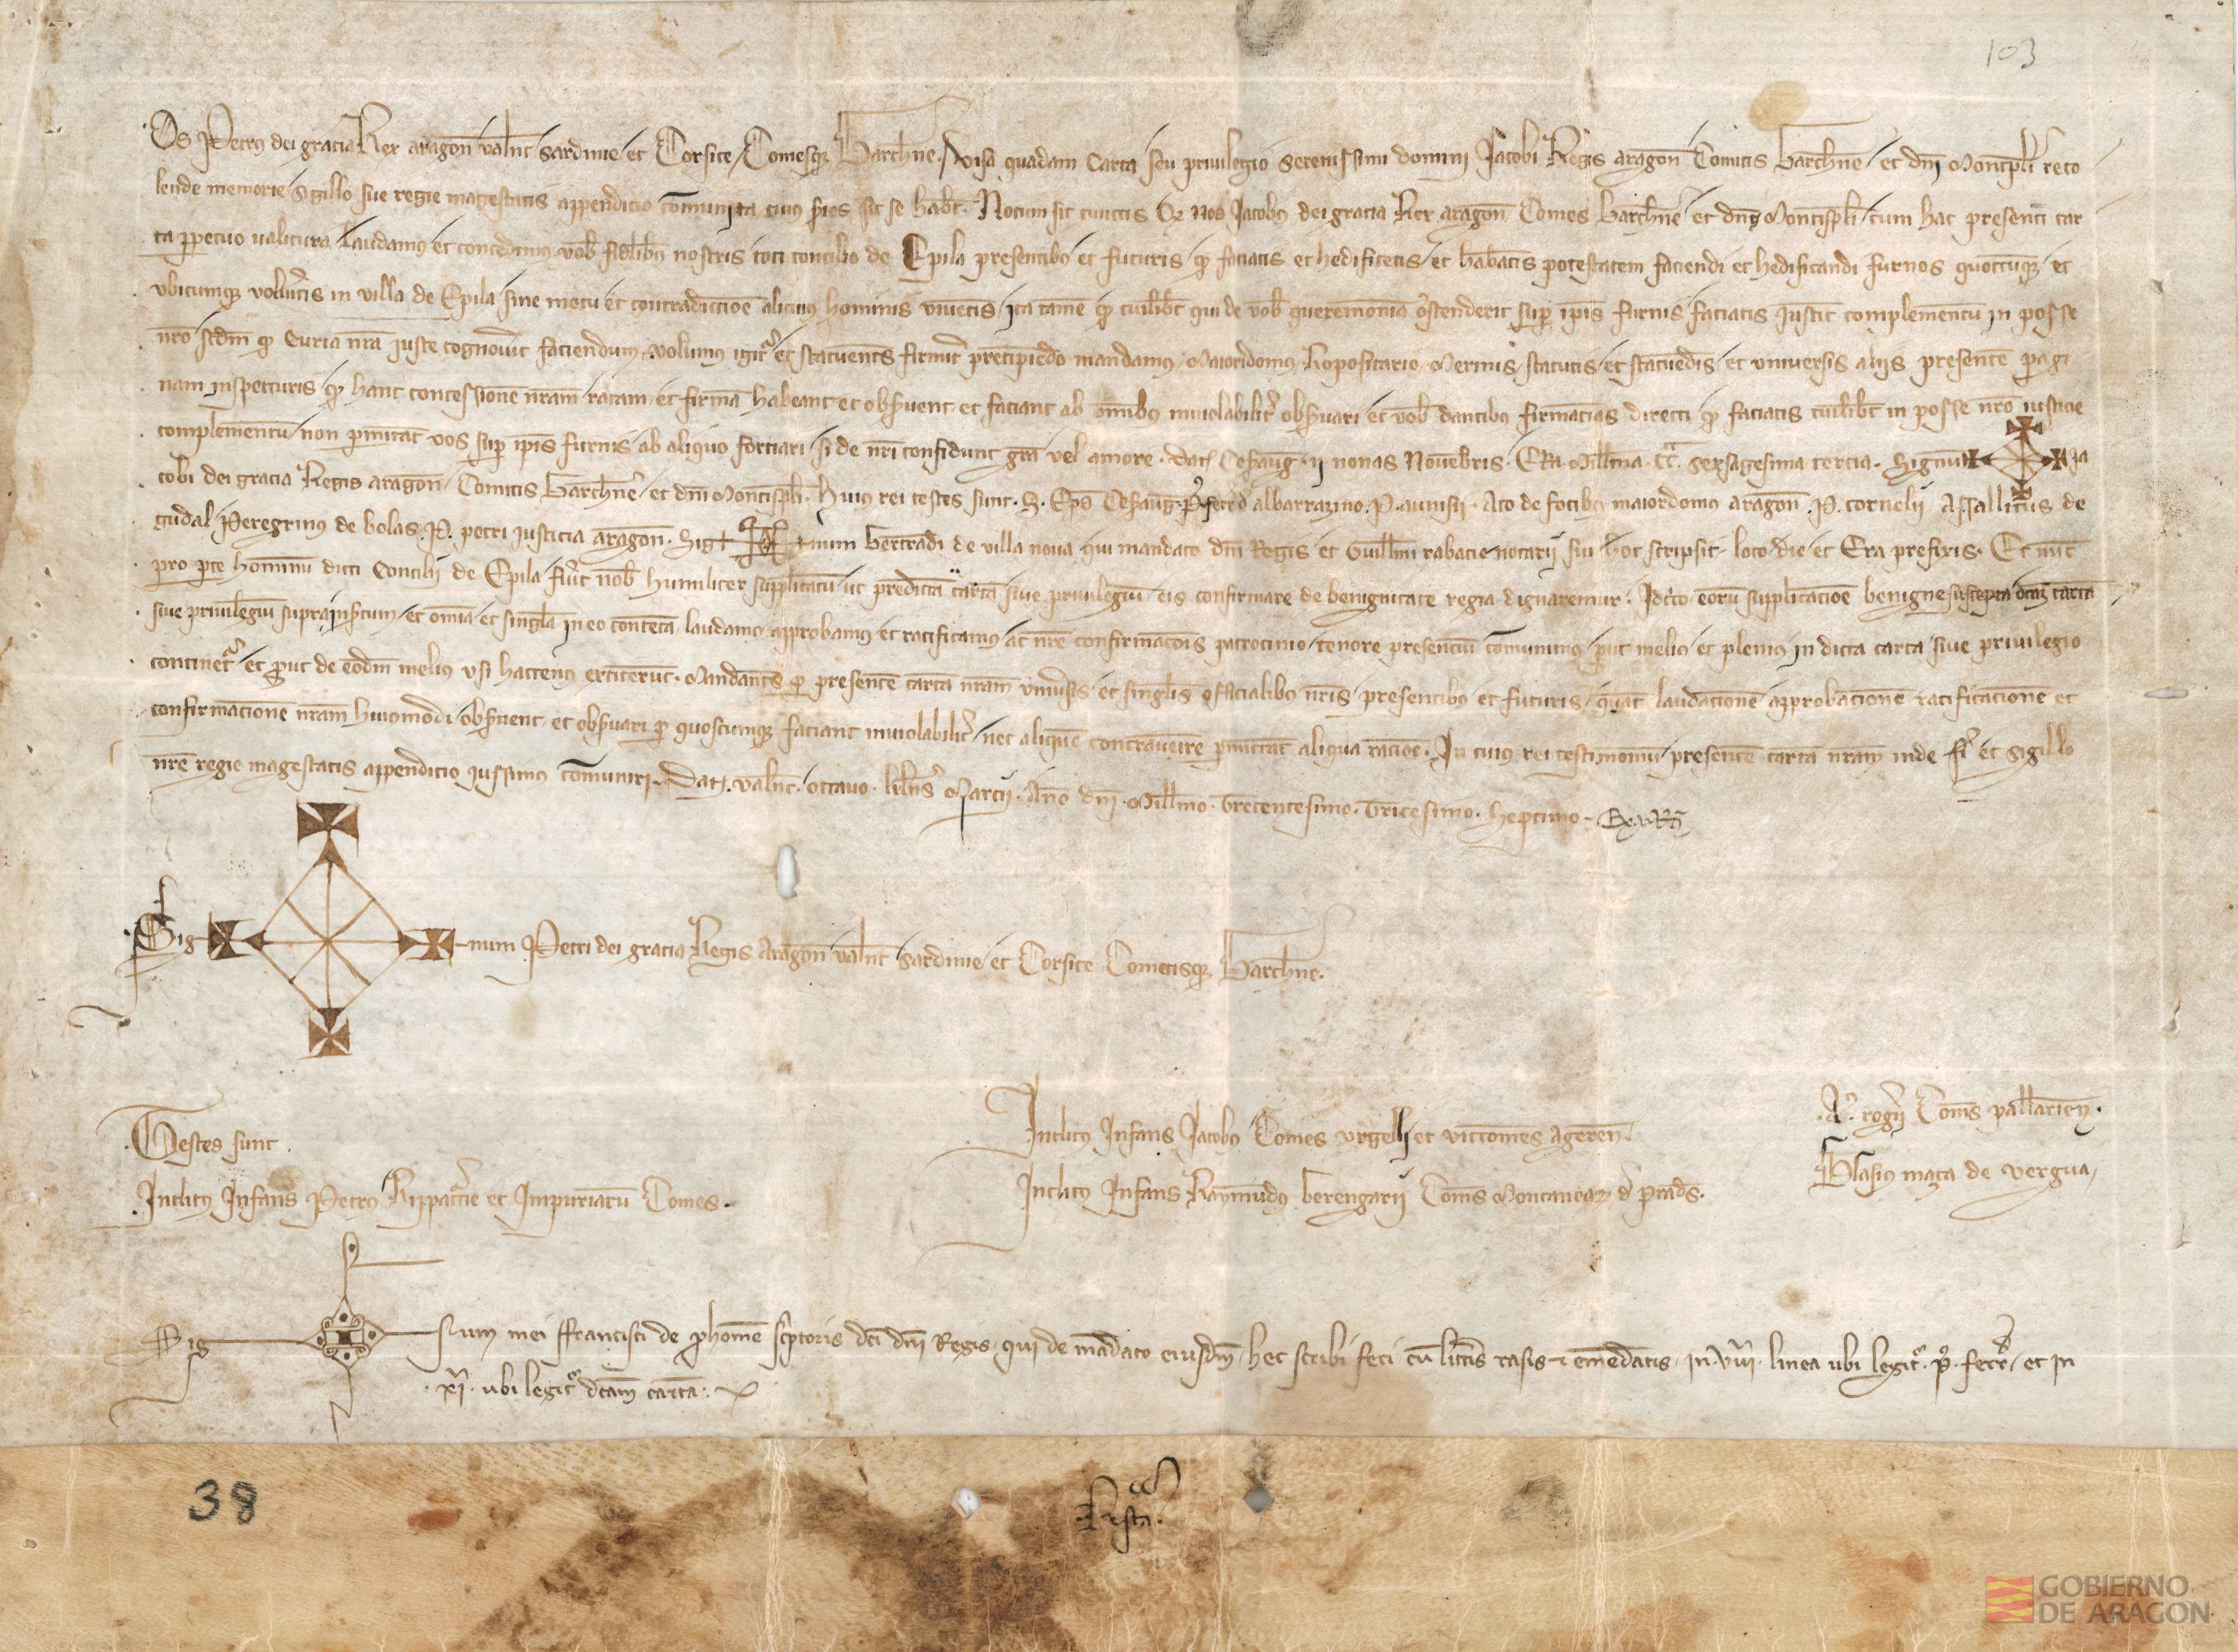 103
Os Petrus dei gracia Rex aragon̄ valn̄c sardinie et Corsice Comesq̨ Barchn̄e. Visa quadam Carta seu privilegio serenissimi domini Jacobi Regis aragon̄ Comitis barchn̄e et dn̄i Montispl̄i reco
lende memorie sigillo sue regie magestatis appendicio comunita cuius s̄ies sic se hab̄t. Notum sit cunctis Q̨ nos Jacobus dei gracia Rex aragon̄ Comes barchn̄e et dn̄s Montispl̄i cum hac presenti car
ta ꝑpetuo valitura laudamus et concedimus vob̄ fidlib̄s nostris toti concilio de Epila presentibus et futuris ꝙ faciatis et hedificetis et habeatis potestatem faciendi et hedificandi furnos quotcūq̨ et
ubicumq̨ voluitis in villa de Epila sine motu et contradiccioē alicuius hominis viventis ita tamē ꝙ cuilib̄t qui de vob̄ querimonia ostenderit suꝑ ip̄is furnis faciatis justic̄ complementū in posse
nr̄o scdm̄ ꝙ Curia nr̄a juste cognov̄it faciendum. Volumus igit᷑ et statuentes firmit̄ precipiēdo mandamus Maioridomus Repositario Merinis statutis et statuēdis et universis aliis presentē pagi
nam inspecturis ꝙ hanc concessionē nr̄am ratam et firmā habeant et obs̄vent et faciant ab om̄ibus inviolabilit̄ obs̄vari et vob̄ dantibus firmancias directi ꝙ faciatis cuilib̄t in posse nr̄o justicie
complementū non ꝑmitat vos suꝑ ip̄is furnis ab aliquo forciari si de nr̄i confidunt gr̄a vel amore. Dat̄ Ces̄auḡ. ii nonas Novēbris. Era Mill̄ma. CC. sexsagesima tercia. Signū Ja
cobi dei gracia Regis aragon̄ Comitis barchn̄e et dn̄i Montispl̄i. Huius rei testes sunt. S. Ep̄s Ces̄auḡ. P. ferrđ albarrazino. P. aunisii. Ato de focibus maiordomus aragon̄. P. cornelii Assallitus de
gudal Peregrinus de bolas. P. petri justicia aragon̄. Sig num bertrādi de villa nova qui mandato dn̄i Regis et Guill̄mi rabacie notarii sui hoc scripsit loco die et Era prefixis. Et nūc
pro ꝑte hominū dicti Concilii de Epila fuīt nob̄ humiliter supplicatū ut predictā cartā sive privilegiū eis confirmare de benignitate regia dignaremur. Idc̄co eorū supplicacioē benigne suscepta dcām cartā
sive privilegiū suprainsc̄tum et om̄ia et singl̄a in eo contēta laudamus approbamus et ratificamus ac nr̄e confirmacōis patrocinio tenore presenciū comunimus ꝓut melius et plenius in dicta carta sive privilegio
continet᷑ et ꝓut de eodm̄ melius usi hactenus extiterūt. Mandantes ꝑ presentē cartā nr̄am univ̄sis et singl̄is officialibus nr̄is presentibus et futuris quat̄ laudacionē approbacionē ratificacionē et
confirmacionē nr̄am huiusmodi obs̄vent et obs̄vari ꝑ quoscumq̨ faciant inviolabilit̄ nec aliquē contraveīre ꝑmittāt aliqua racioē. In cuius rei testimoniū presentē cartā nr̄am inde fī et sigillo
nr̄e regie magestatis appendicio jussimus comuniri. Dat̄. Valn̄c. octavo. kln̄s Marcii. Año dn̄i. Mill̄mo. Trecentesimo. Tricesimo. Septimo
Sig num Petri dei gracia Regis Aragon̄ valn̄c sardinie et Corsice Comitisq̨ Barchn̄e.
Testes sunt.
Inclitus Infans Petrus Rippacur̄cie et Impuriarū Comes.
Inclitus Infans Jacobus Comes urgelli et vicecomes Ageren̄.
Inclitus Infans Raymūdus berengarii Com̄s Montanear̨ đ prad̄s.
A. rogerii Com̄s pallarien̄.
Blasius maça de vergua
Sig num mei ffrancisci de ꝓhomē sc̄ptoris dcī dn̄i Regis qui de mādato eiusdm̄ hec scribi feci cū litt̄is rasis et emēdatis in VIII. linea ubi legit᷑. P. ferr̄ et in
XI. ubi legit᷑ dcām cartā.
38
Rest̄a.
GOBIERNO
DE ARAGON